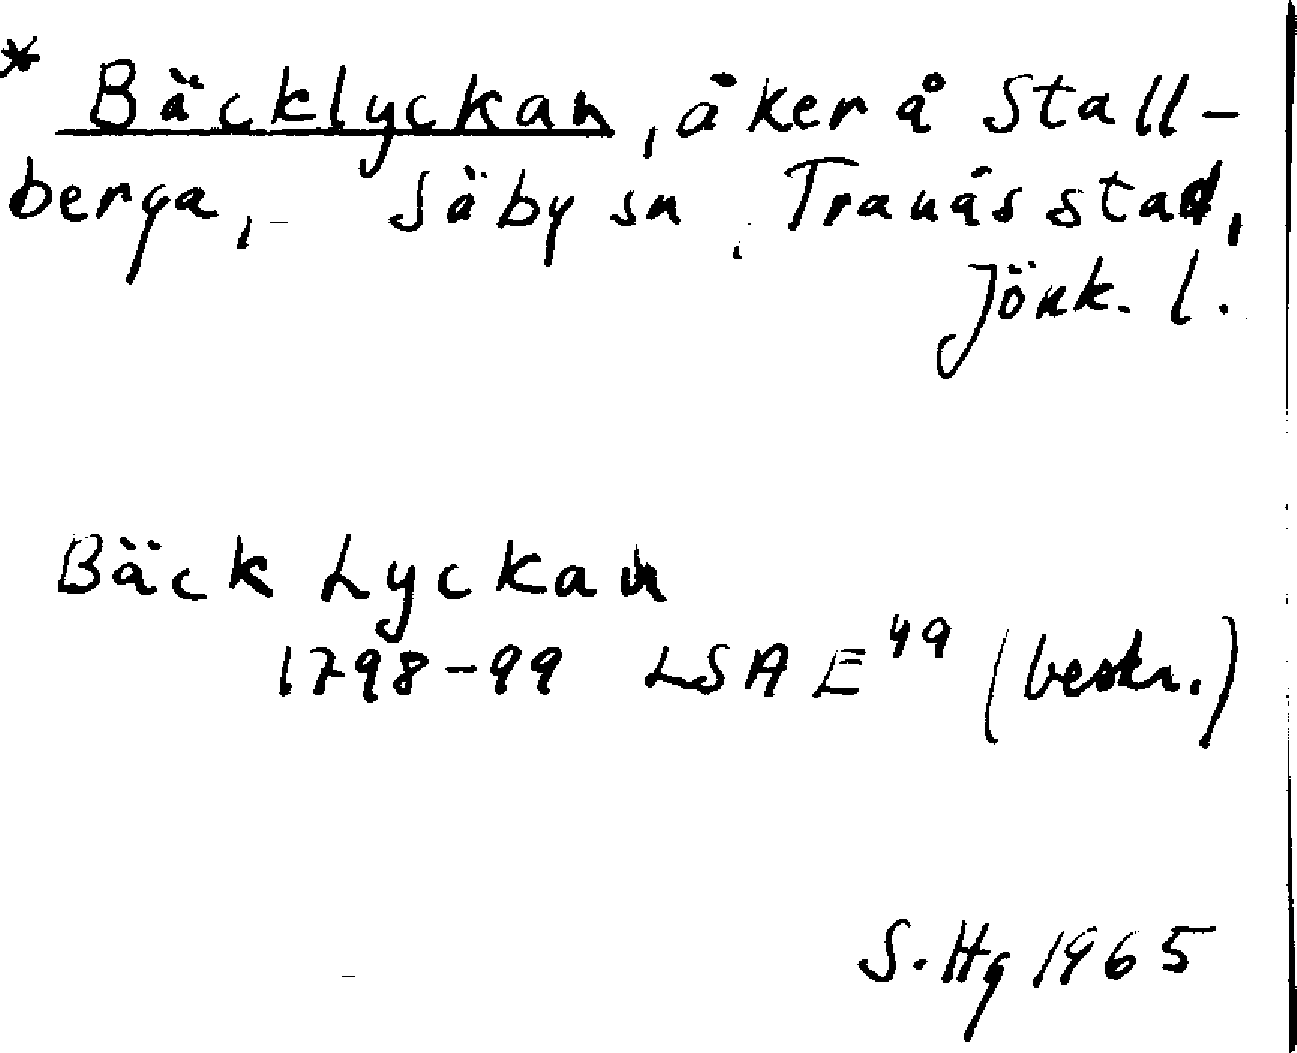 * Bäcklyckan, åker å Stall-
berga, Säby sn, Tranås stad,
Jönk. l.
Bäck Lyckan
1798-99 LSA E 49 (beskr.)
S. Hg 1965